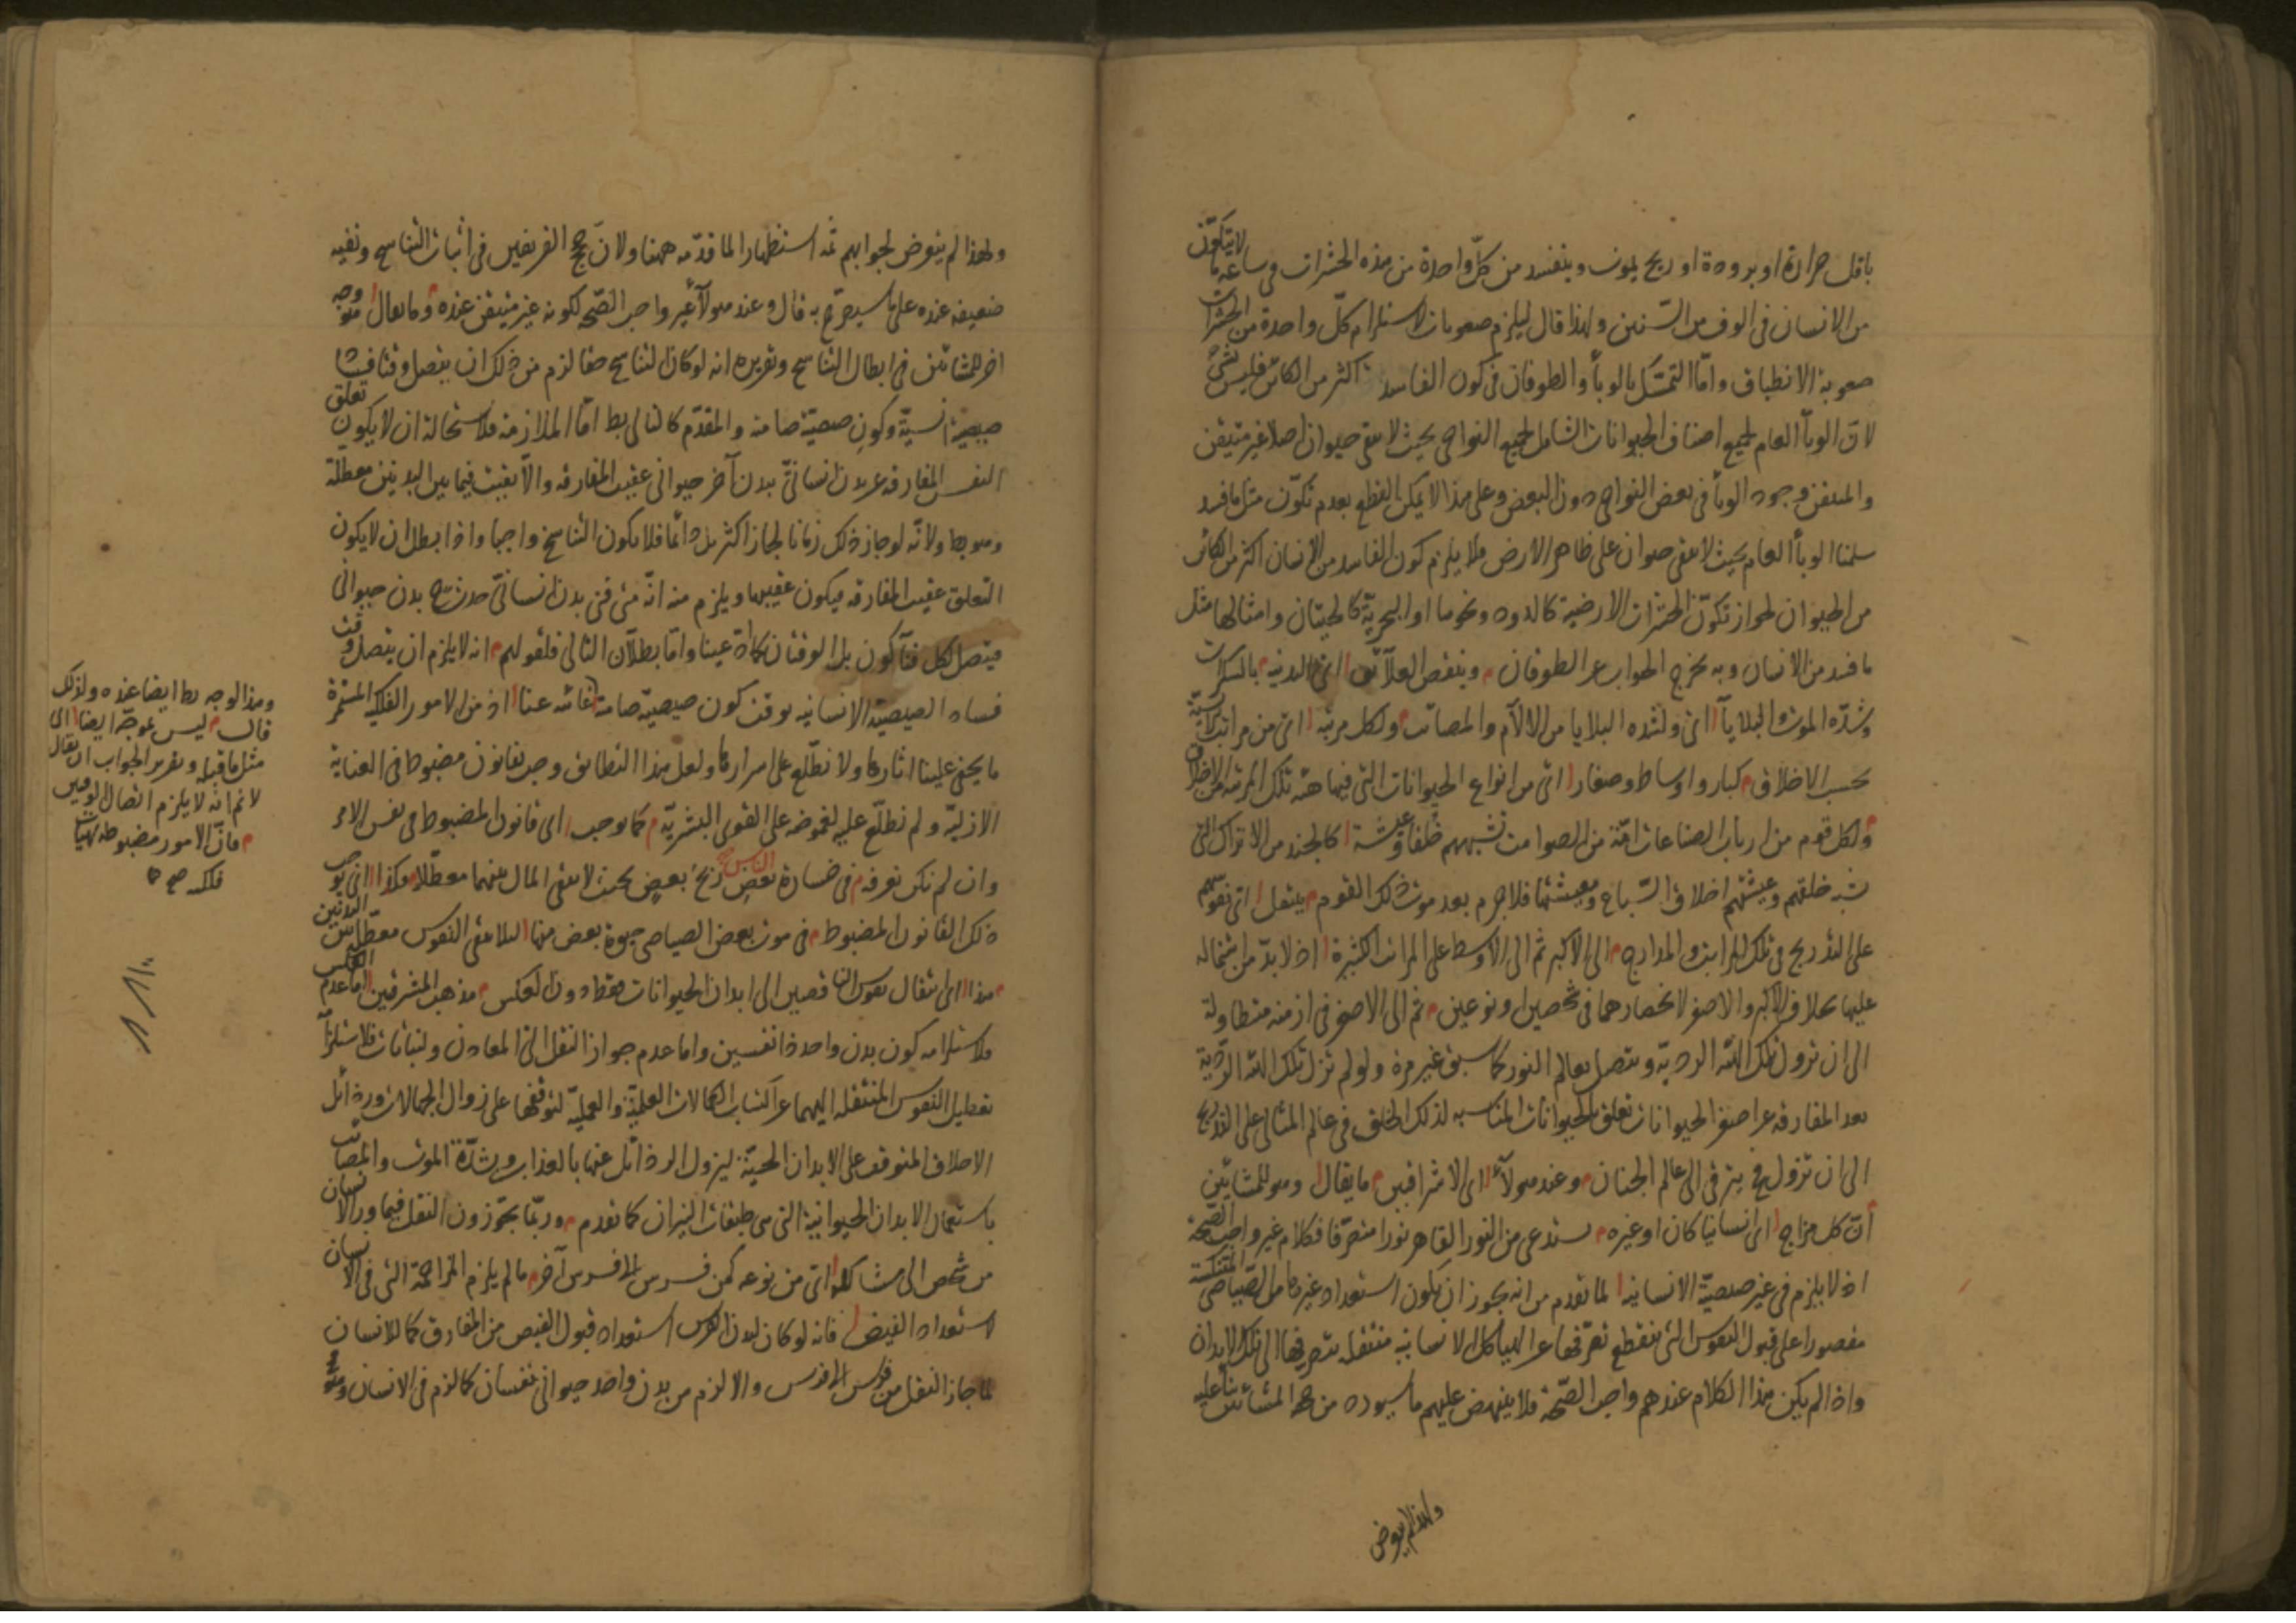 باقل حرارة او برودة او ريح يموت ويتفسد من كلّ واحدة من هذه الحشرات فى ساعة ما لا يتكوّن
من الانسان فى الوف من السنين ولهذا قال ليلزم صعوبات لاستلزام كلّ واحدة من الحشرات
صعوبة الانطباق وامّا التمسّك بالوبأ والطوفان فى كون الفاسد اكثر من الكائن فليس بشئ
لانّ الوبأ العام لجميع اصناف الحيوانات الشامل لجميع النواحى بحيث لا يبقى حيوان اصلا غير متيقن
والمتيقن وجود الوبأ فى بعض النواحى دون البعض وعلى هذا لا يمكن القطع بعدم تكوّن مثل ما فسد
سلمنا الوبأ العام بحيث لا يبقى حيوان على ظاهر الارض فلا يلزم كون الفاسد من الانسان اكثر من الكائن
من الحيوان لجواز تكوّن الحشرات الارضية كالدود ونحوها او البحريّة كالحيتان وامثالها مثل
ما فسد من الانسان وبه يخرج الجواب عن الطوفان وينقص العلائق اى البدنيه بالسكرات
وشدّة الموت والبلايا اى ولشده البلايا من الآلام والمصائب ولكل مرتبه اى من مراتب
بحسب الاخلاق كبار واوساط وصغار اى من انواع الحيوانات التى فيها هذه تلك المرتبة من الاخلاق
ولكل قوم من ارباب الصناعات امّة من الصوامت تشبههم خُلقا وعيشة كالجند من الاتراك التى
يشبه خلقهم وعيشتهم اخلاق السباع ومعيشتها فلا جرم بعد موت ذلك القوم ينتقل اى نفوسهم
على التدريج فى تلك المراتب والمدارج الى الاكبر ثم الى الاوسط على المراتب الكثيرة اذ لا بدّ من انتقاله
عليها بخلاف الاكبر والاصغر لانحصارهما فى شخصين او نوعين ثم الى الاصغر فى ازمنة متطاولة
الى ان تزول تلك الهيئة الرديّة ويتصل بعالم النور كما سبق غير مرة ولو لم تزل تلك الهيئة الرديّة
بعد المفارقه عن اصغر الحيوانات تعلق بالحيوانات المناسبه لذلك الخلق فى عالم المثال على التدريج
الى ان تزول فح يترقى الى عالم الجنان وعند هولاء اى الاشراقيين ما يقال وهو للمشائين
انّ كل مزاج اى انسانيا كان او غيره يستدعى من النور القاهر نورا متصرّفا فكلام غير واجب الصّحة
اذ لا يلزم فى غير صيصيّة الانسانيه لما تقدم من انه يجوز ان يكون استعداد غيره من الصياصى المنتكسة
مقصورا على قبول النفوس التى ينقطع تصرّفها عن الهياكل الانسانيه منتقله بتصرفها الى تلك الابدان
واذا لم يكن هذا الكلام عندهم واجب الصّحة فلا ينهض عليهم ما سيورده من حجج المشائين بناء عليه
ولهذا لم يتعرض
ولهذا لم يتعرض لجوابهم ثمّه استظهارا لما قدّمه ههنا ولانّ حجج الفريقين فى اثبات التناسخ ونفيه
ضعيفه عنده على ما سيصرّح به قال وعند هولاء غير واجب الصّحة لكونه غير متيقن عنده وما يقال وهو وجه
اخر للمشائين فى ابطال التناسخ وتقريره انه لو كان التناسخ حقا لزم من ذلك ان يتصل وقت فساد
صيصية انسيّة وكون صيصيّة صامته والمقدّم كالتالى بط امّا الملازمه فلاستحالة ان لا يكون تعلق
النفس المفارقه عن بدن انسانىّ ببدن آخر حيوانى عقيب المفارقه والّا بقيت فيما بين البدنين معطّلة
وهو بط ولانّه لو جاز ذلك زمانا لجاز اكثر بل دائما فلا يكون التناسخ واجبا واذا بطل ان لا يكون
التعلق عقيب المفارقه فيكون عقيبها ويلزم منه انّه متى فنى بدن انسانىّ حدث ح بدن حيوانى
فيتصل لكل فناء كون بل الوقتان كما مرّ عينا وامّا بطلان التالى فلقولهم انه لا يلزم ان يتصل وقت
فساد الصيصية الانسانيه بوقت كون صيصيّة صامته غائبه عنا اذ من الامور الفلكية المستمرة
ما يخفى علينا آثارها ولا نطّلع على اسرارها ولعل هذا التطابق وجب بقانون مضبوط فى العناية
الازليّة ولم نطّلع عليه لغموضه على القوى البشريّة كما وجب اى قانون المضبوط فى نفس الامر
وان لم نكن نعرفه فى خسارة بعض الناس ربح بعض بحيث لا يبقى المال بينهما معطّلا وكذا اى يوجب
ذلك القانون المضبوط فى موت بعض الصياصى حيوة بعض منها لئلا يبقى النفوس معطّله بين البدنين
هذا اى انتقال نفوس الناقصين الى ابدان الحيوانات فقط دون العكس مذهب المشرقيين اما عدم العكس
فلاستلزامه كون بدن واحد ذا نفسين واما عدم جواز النقل الى المعادن والنباتات فلاستلزامه
تعطيل النفوس المنتقله اليهما عن اكتساب الكمالات العلميّة والعمليّة لتوقفها على زوال الجهالات ورذائل
الاخلاق المتوقف على الابدان الحيّة ليزول الرذائل عنها بالعذاب وبشدّة الموت والمصائب
باستعمال الابدان الحيوانية التى هى طبقات النيران كما تقدم وربّما يجوّزون النقل فيما وراء الانسان
من شخص الى مشاكله اى من نوعه كمن فرس الى فرس آخر ما لم يلزم المزاحمة التى فى الانسان
لاستعداد الفيض فانه لو كان لبدن الفرس استعداد قبول الفيض من المفارق كما للانسان
لما جاز النقل من فرس الى فرس والا لزم من بدن واحد حيوانى نفسان كما لزم فى الانسان وهو مح
وهذا الوجه بط ايضا عنده ولذلك
قال ليس بموجّه ايضا اى
مثل ما قبله وتقرير الجواب ان يقال
لا نم انّه لا يلزم اتصال الوقتين
فانّ الامور مضبوطه بهيئات
فلكيه صح